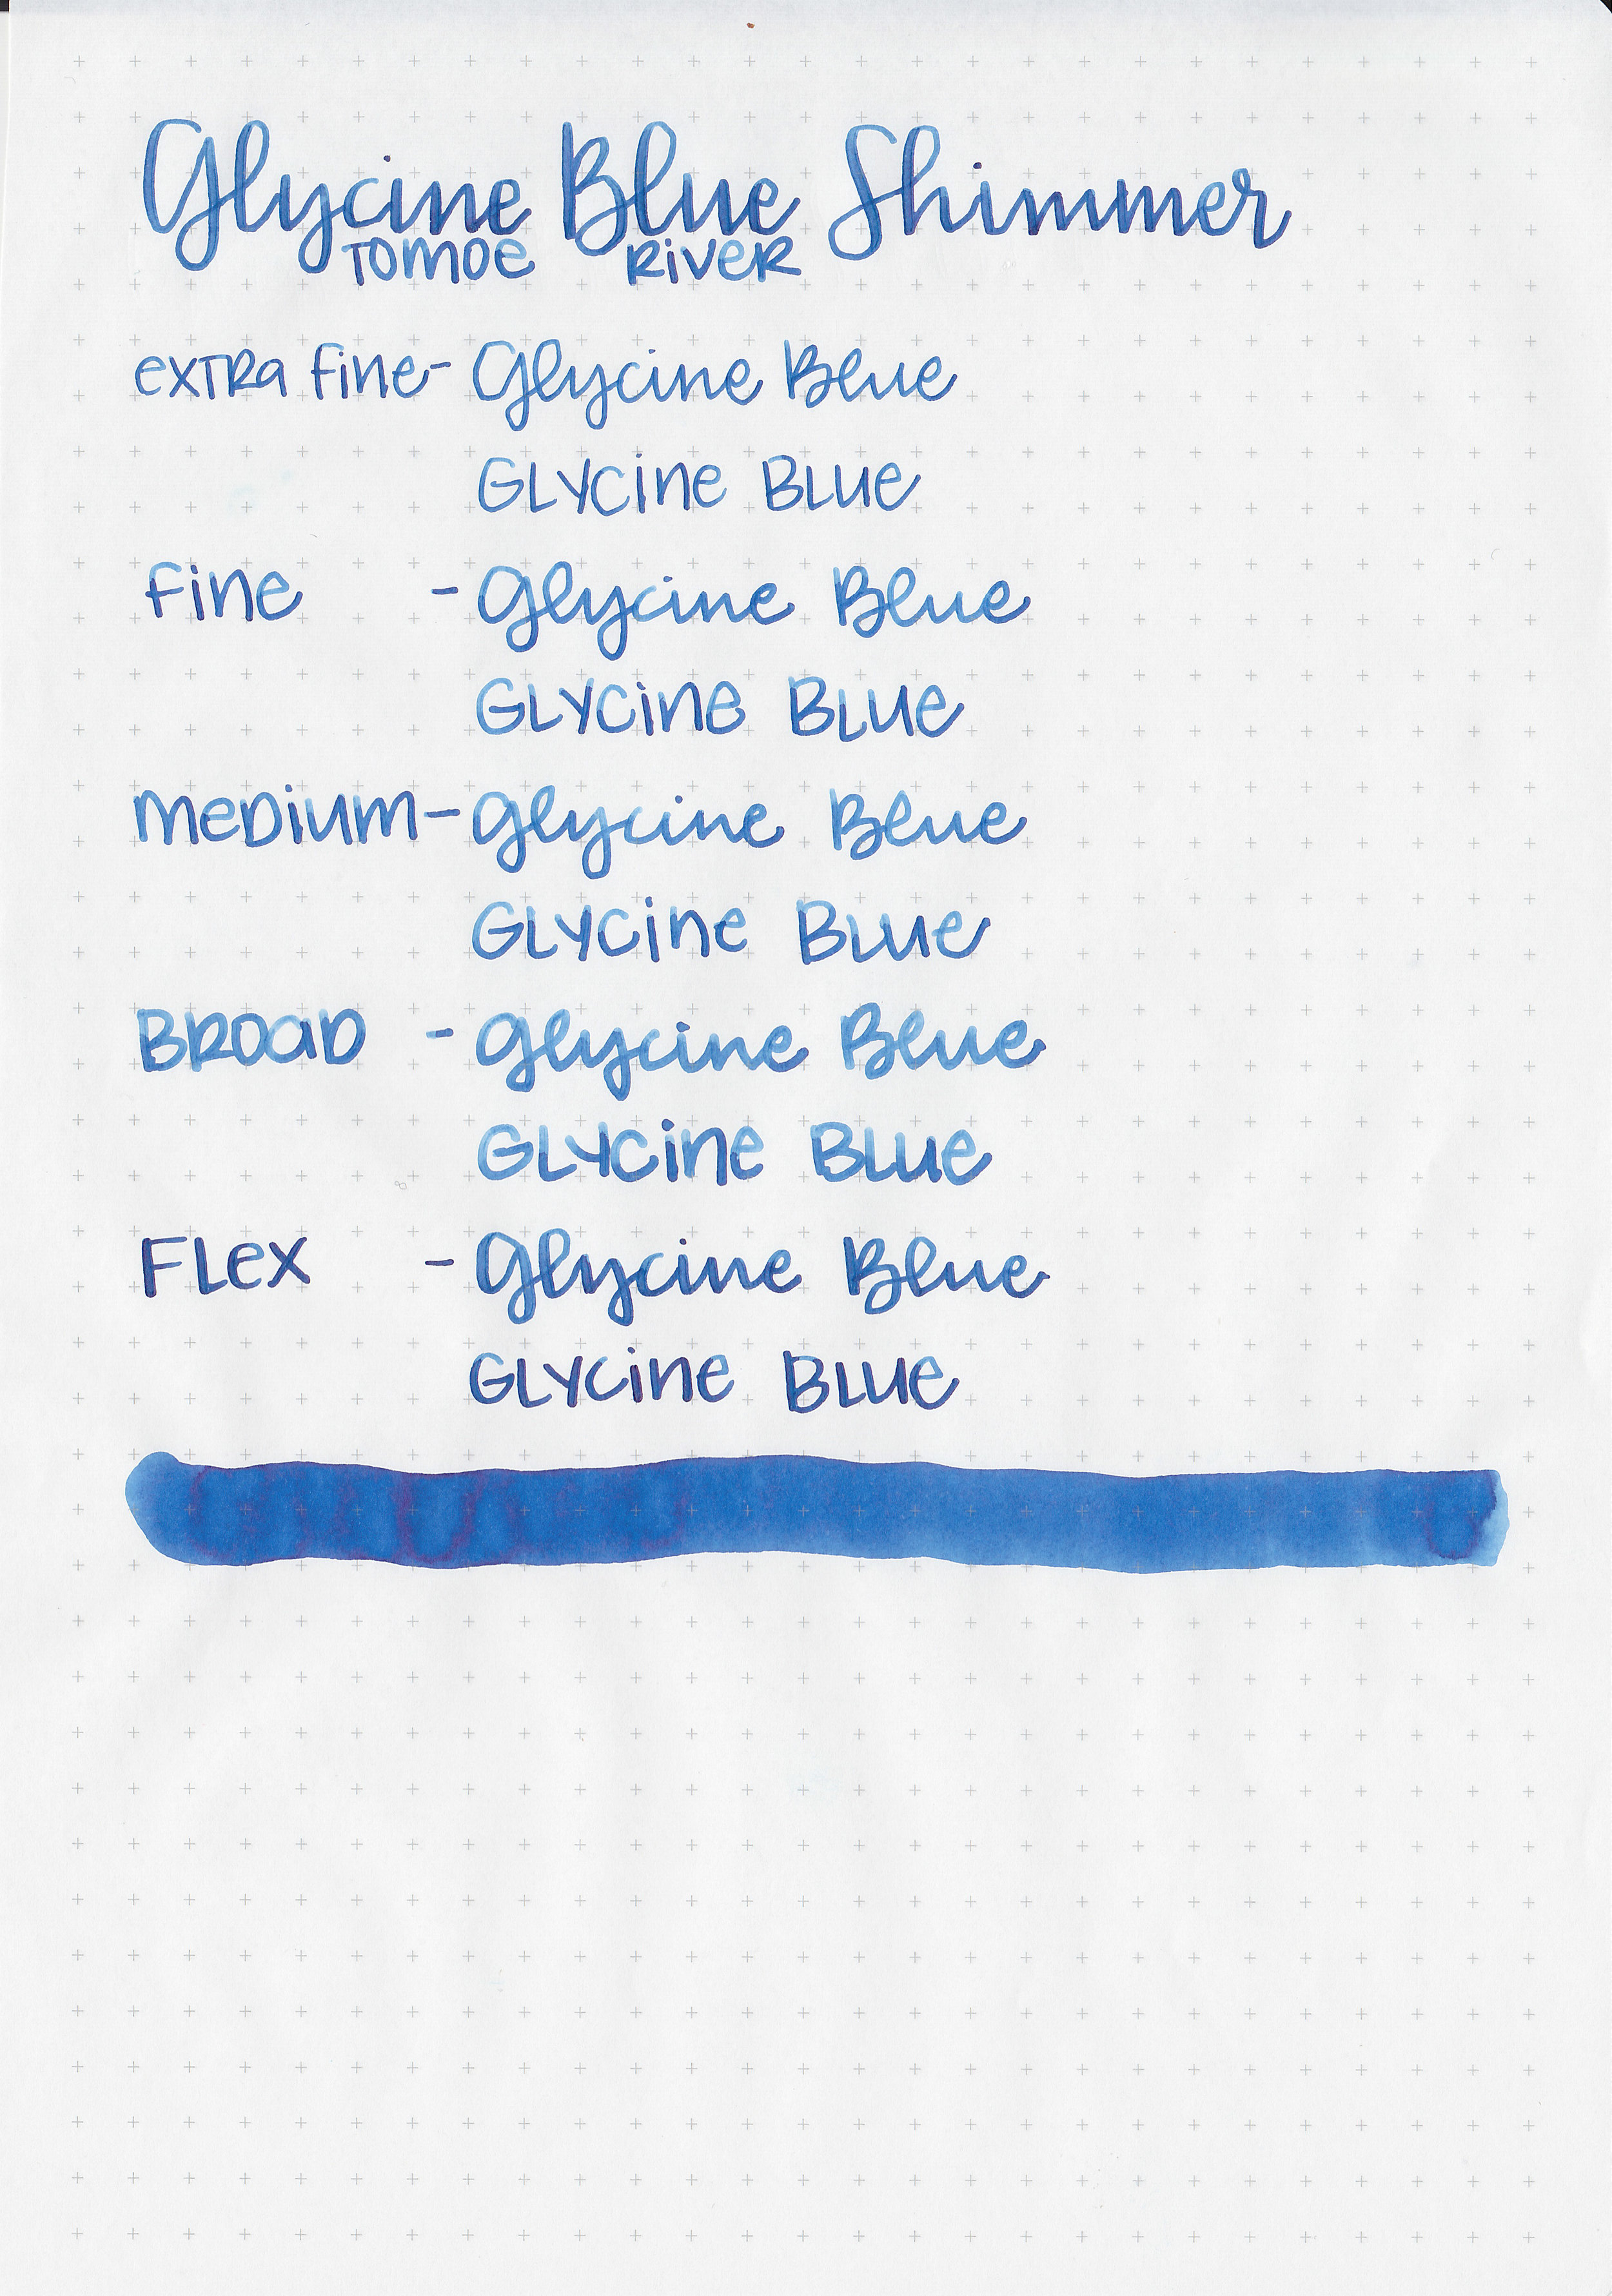 Glycine Blue Shimmer
TOMOE RIVER
EXTRA FINE - Glycine Blue
GLYCINE BLUE
FINE - Glycine Blue
GLYCINE BLUE
MEDIUM - Glycine Blue
GLYCINE BLUE
BROAD - Glycine Blue
GLYCINE BLUE
FLEX - Glycine Blue
GLYCINE BLUE